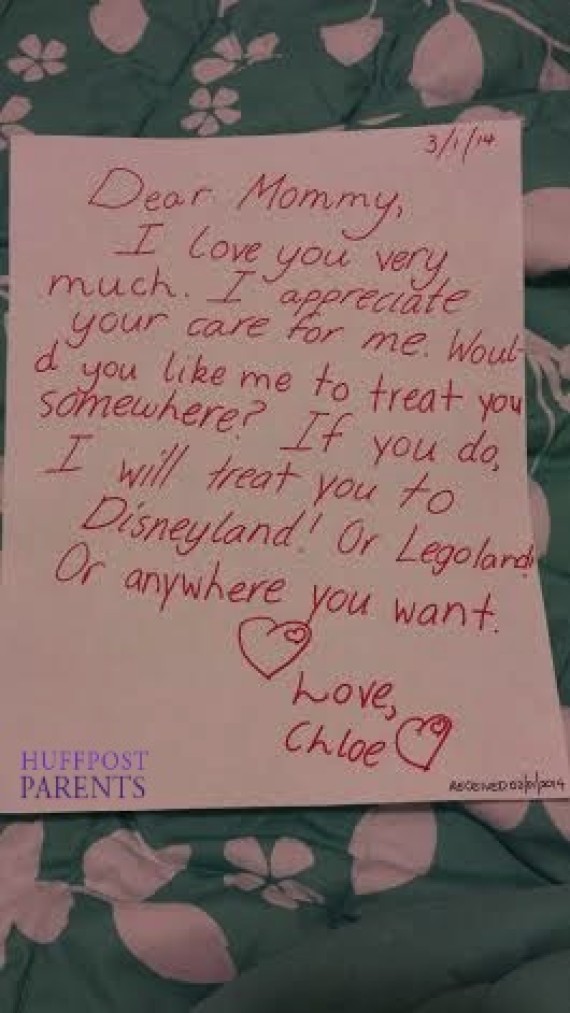 3/1/14
Dear Mommy,
I love you very
much. I appreciate
your care for me. Woul-
d you like me to treat you
somewhere? If you do,
I will treat you to
Disneyland! Or Legoland!
Or anywhere you want.
Love,
Chloe
HUFFPOST
PARENTS